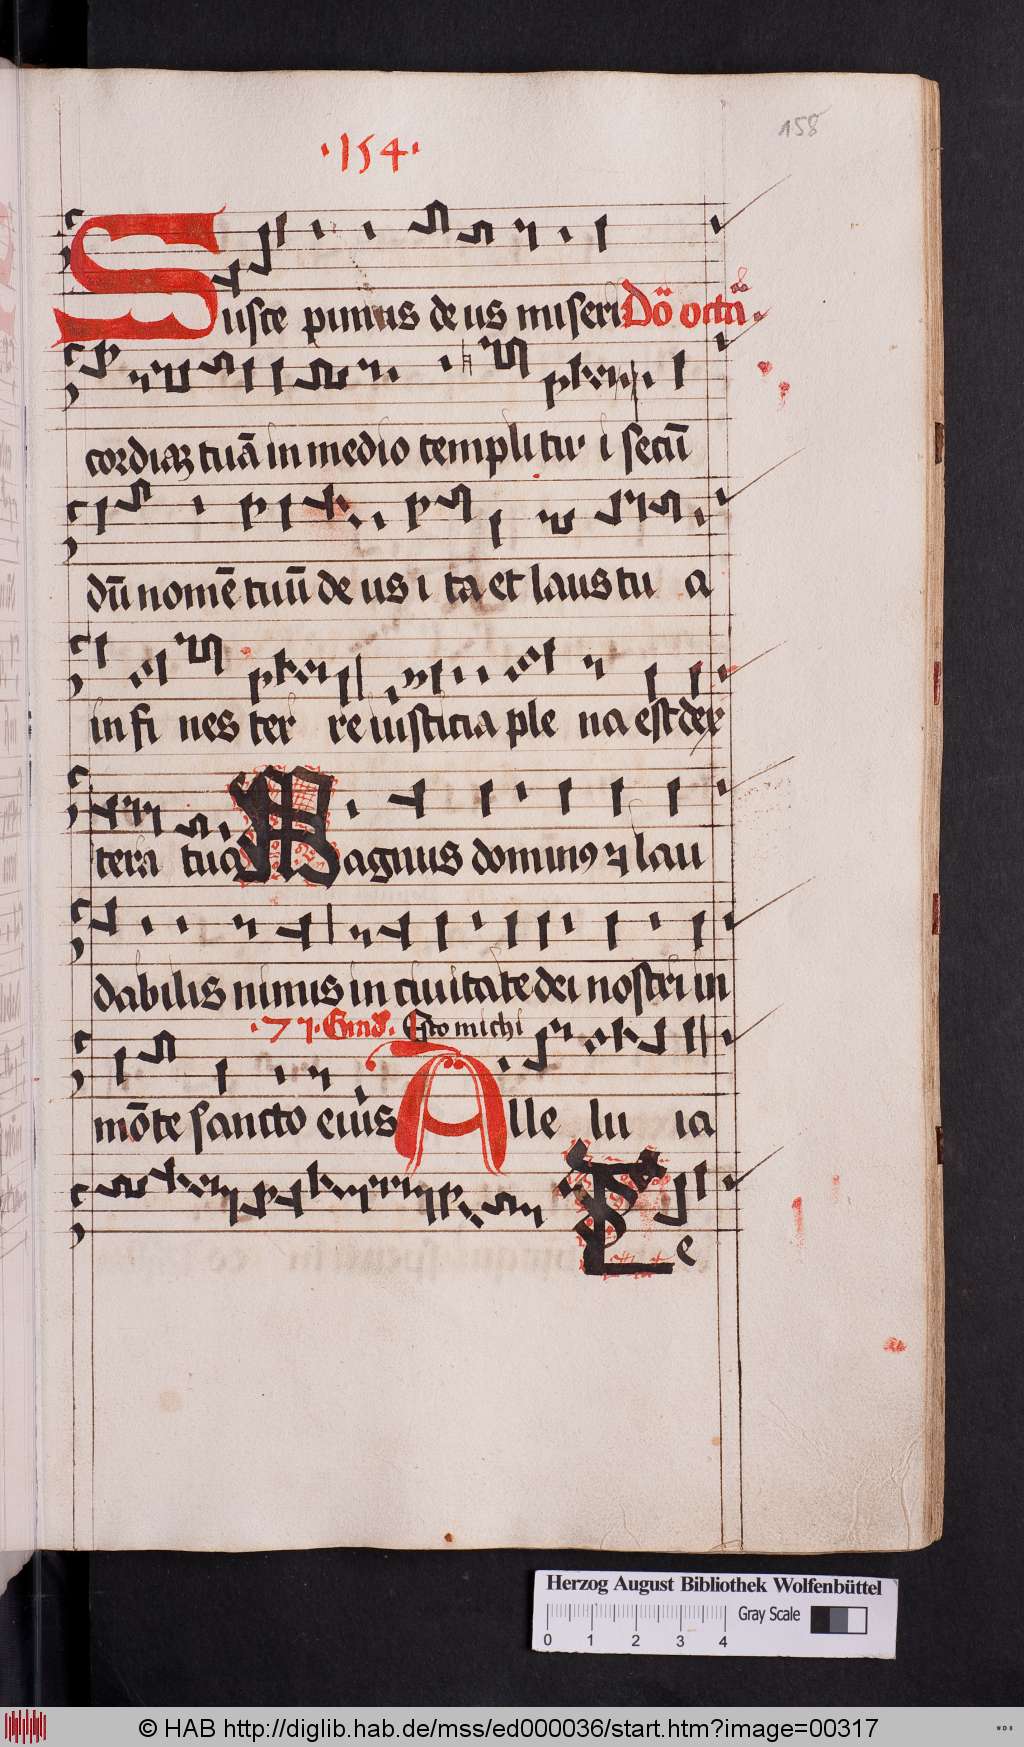 158
·154·
Suscepimus deus miseri Dō octā
cordiaʒ tuā in medio templi tui secū
dū nomē tuū deus ita et laus tua
in fines terre iusticia plena est dex
tera tua Magnus dominꝰ ⁊ lau
dabilis nimis in ciuitate dei nostri in
·71· Esto michi
mōte sancto eiꝰ Alleluia
Te
Herzog August Bibliothek Wolfenbüttel
Gray Scale
0 1 2 3 4
© HAB http://diglib.hab.de/mss/ed000036/start.htm?image=00317